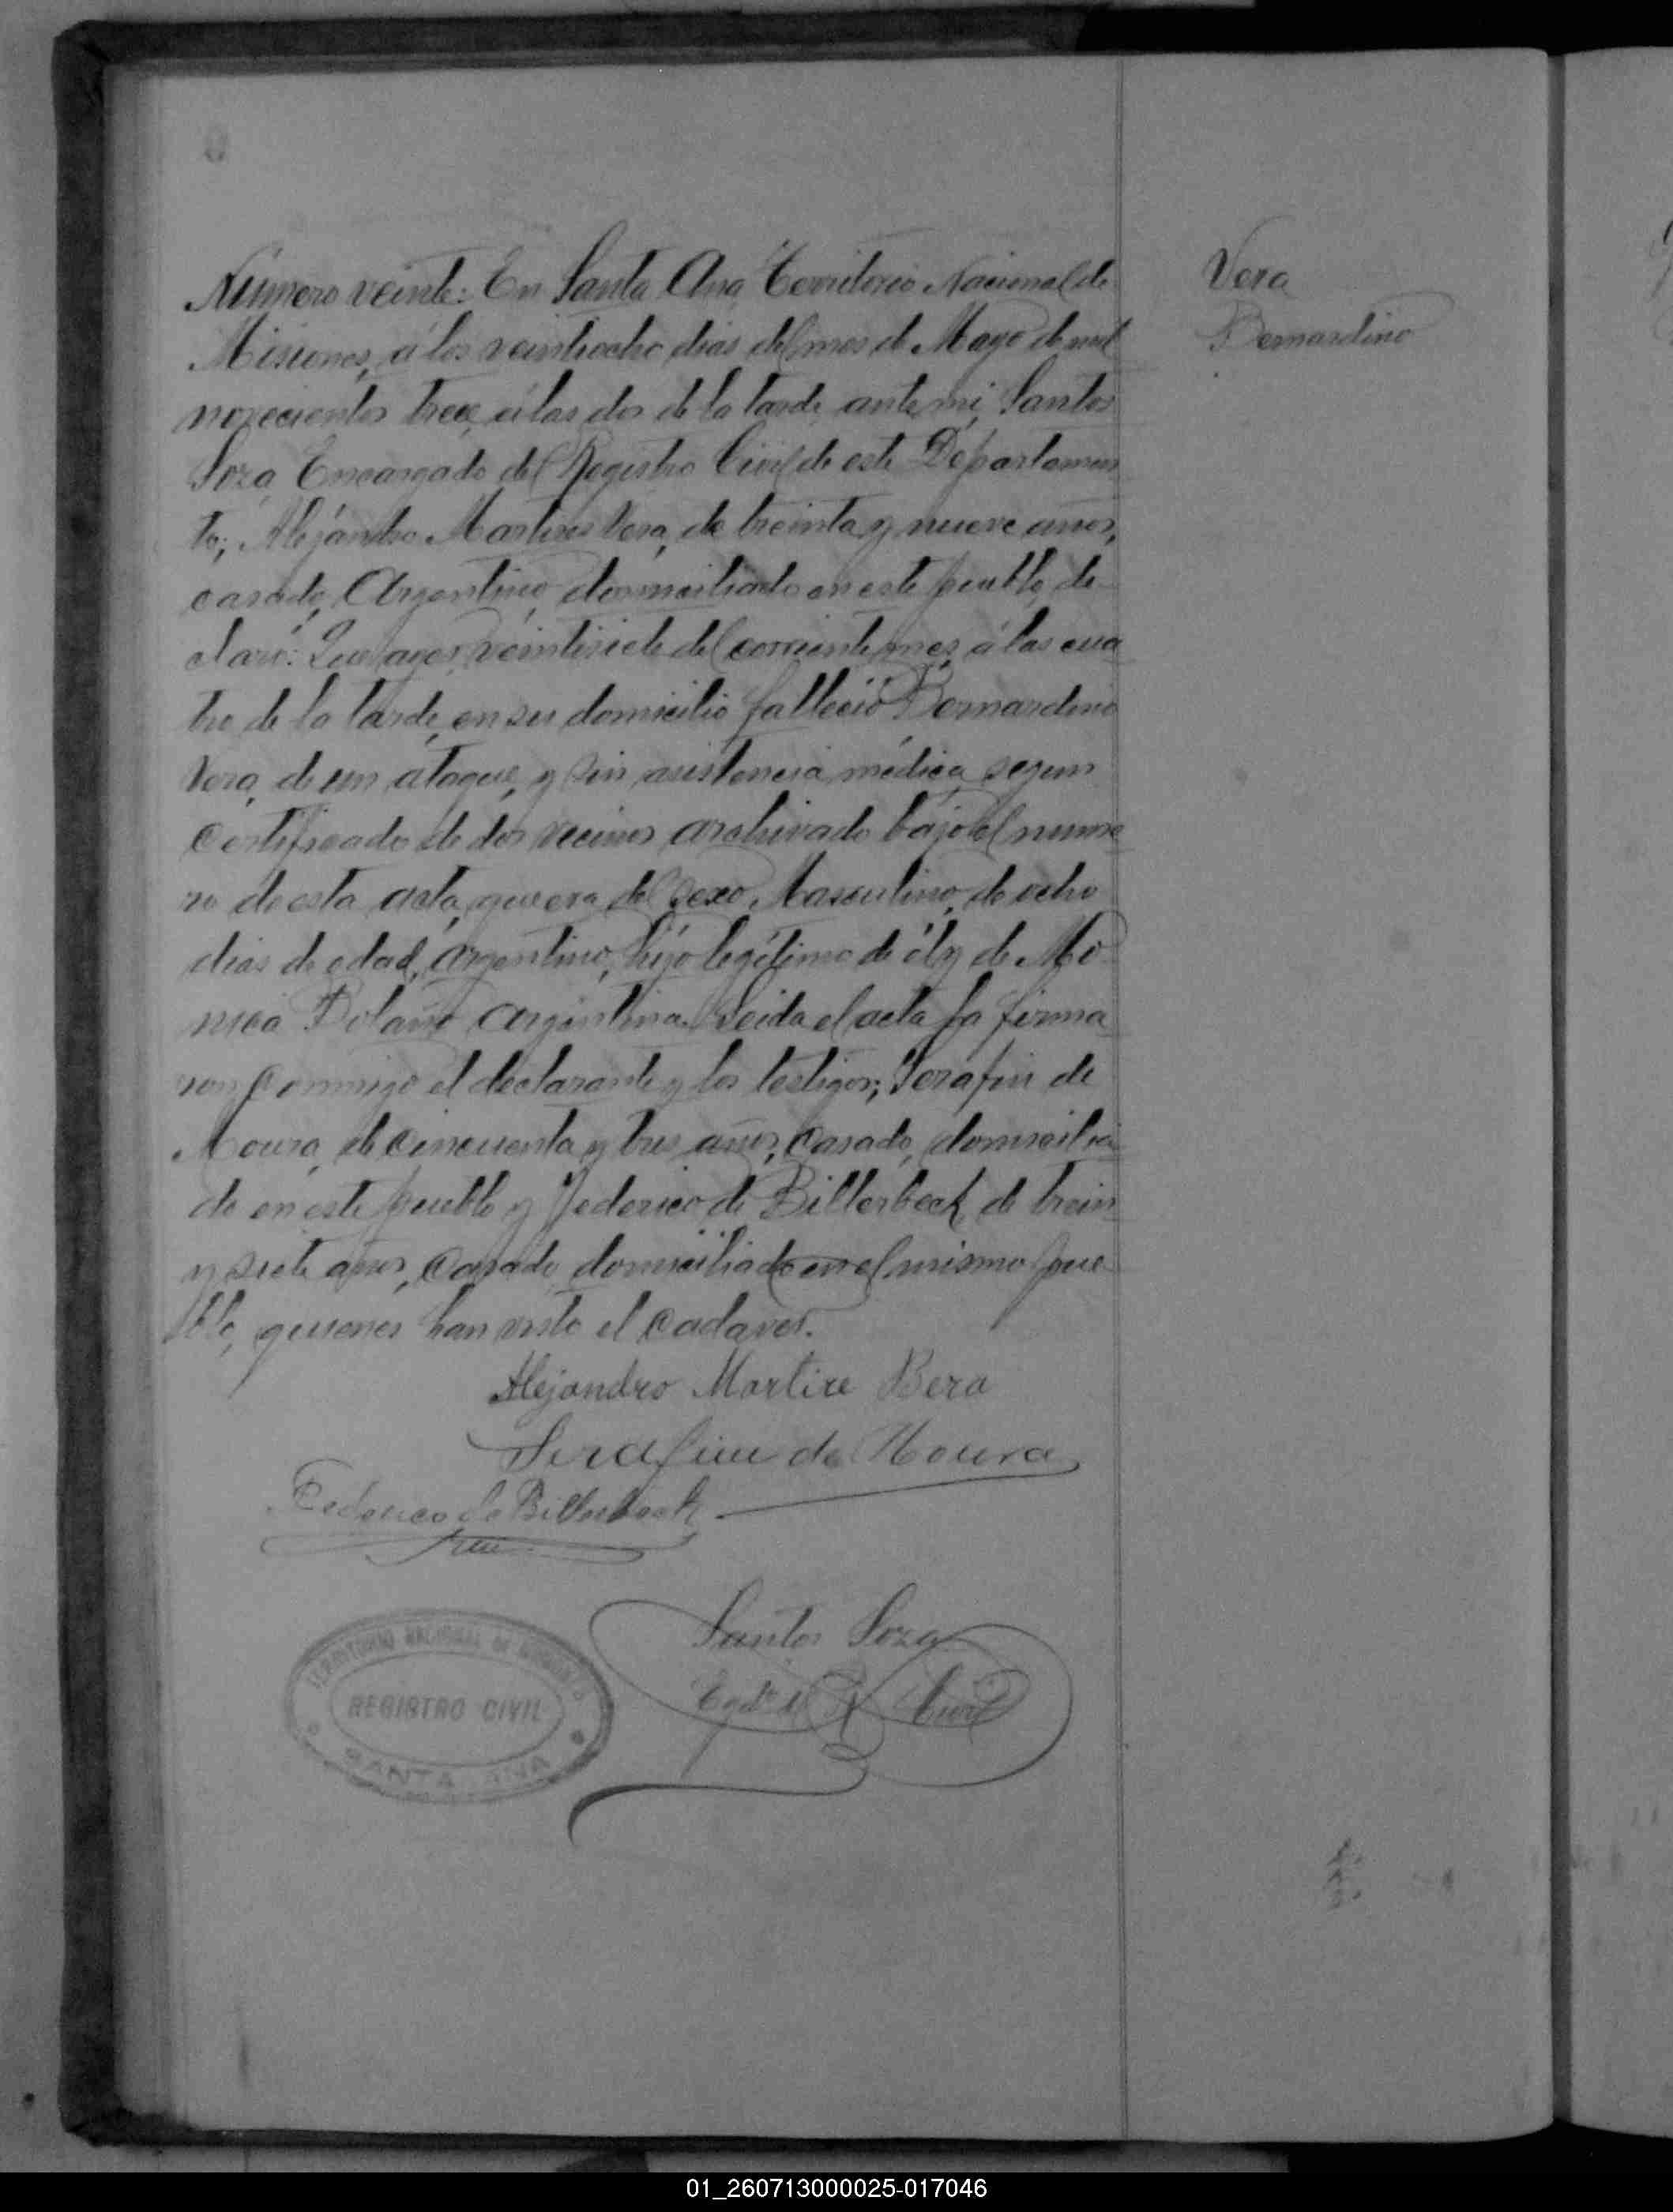 Número veinte: En Santa Ana Territorio Nacional de
Misiones, á los veintiocho dias del mes de Mayo de mil
novecientos trece, á las dos de la tarde, ante mí, Santos
Soza Encargado del Registro Civil de este Departamen
to; Alejandro Martires Vera, de treinta y nueve años,
casado, Argentino, domiciliado en este pueblo, de-
claró: Que ayer veintisiete del corriente mes, á las cua
tro de la tarde, en su domicilio falleció Bernardino
Vera, de un ataque, y sin asistencia médica, segun
certificado de dos vecinos archivado bájo el nume
ro de esta acta, que era del sexo Masculino, de ocho
dias de edad, Argentino, hijo legítimo de él y de Mó
nica Bolaño Argentina. Leida el acta la firma
ron conmigo el declarante y los testigos; Serafin de
Moura, de cincuenta y tres años, casado, domicilia
do en este pueblo y Federico de Billerbeck, de trein
y siete años, casado, domiciliado en el mismo pue
blo, quienes han visto el cadaver.
Alejandro Martire Bera
Serafim de Moura
Federico de Billerbeck
Santos Soza
Egdo. del R. Civil
TERRITORIO NACIONAL DE MISIONES
REGISTRO CIVIL
SANTA ANA
Vera
Bernardino
01_260713000025-017046